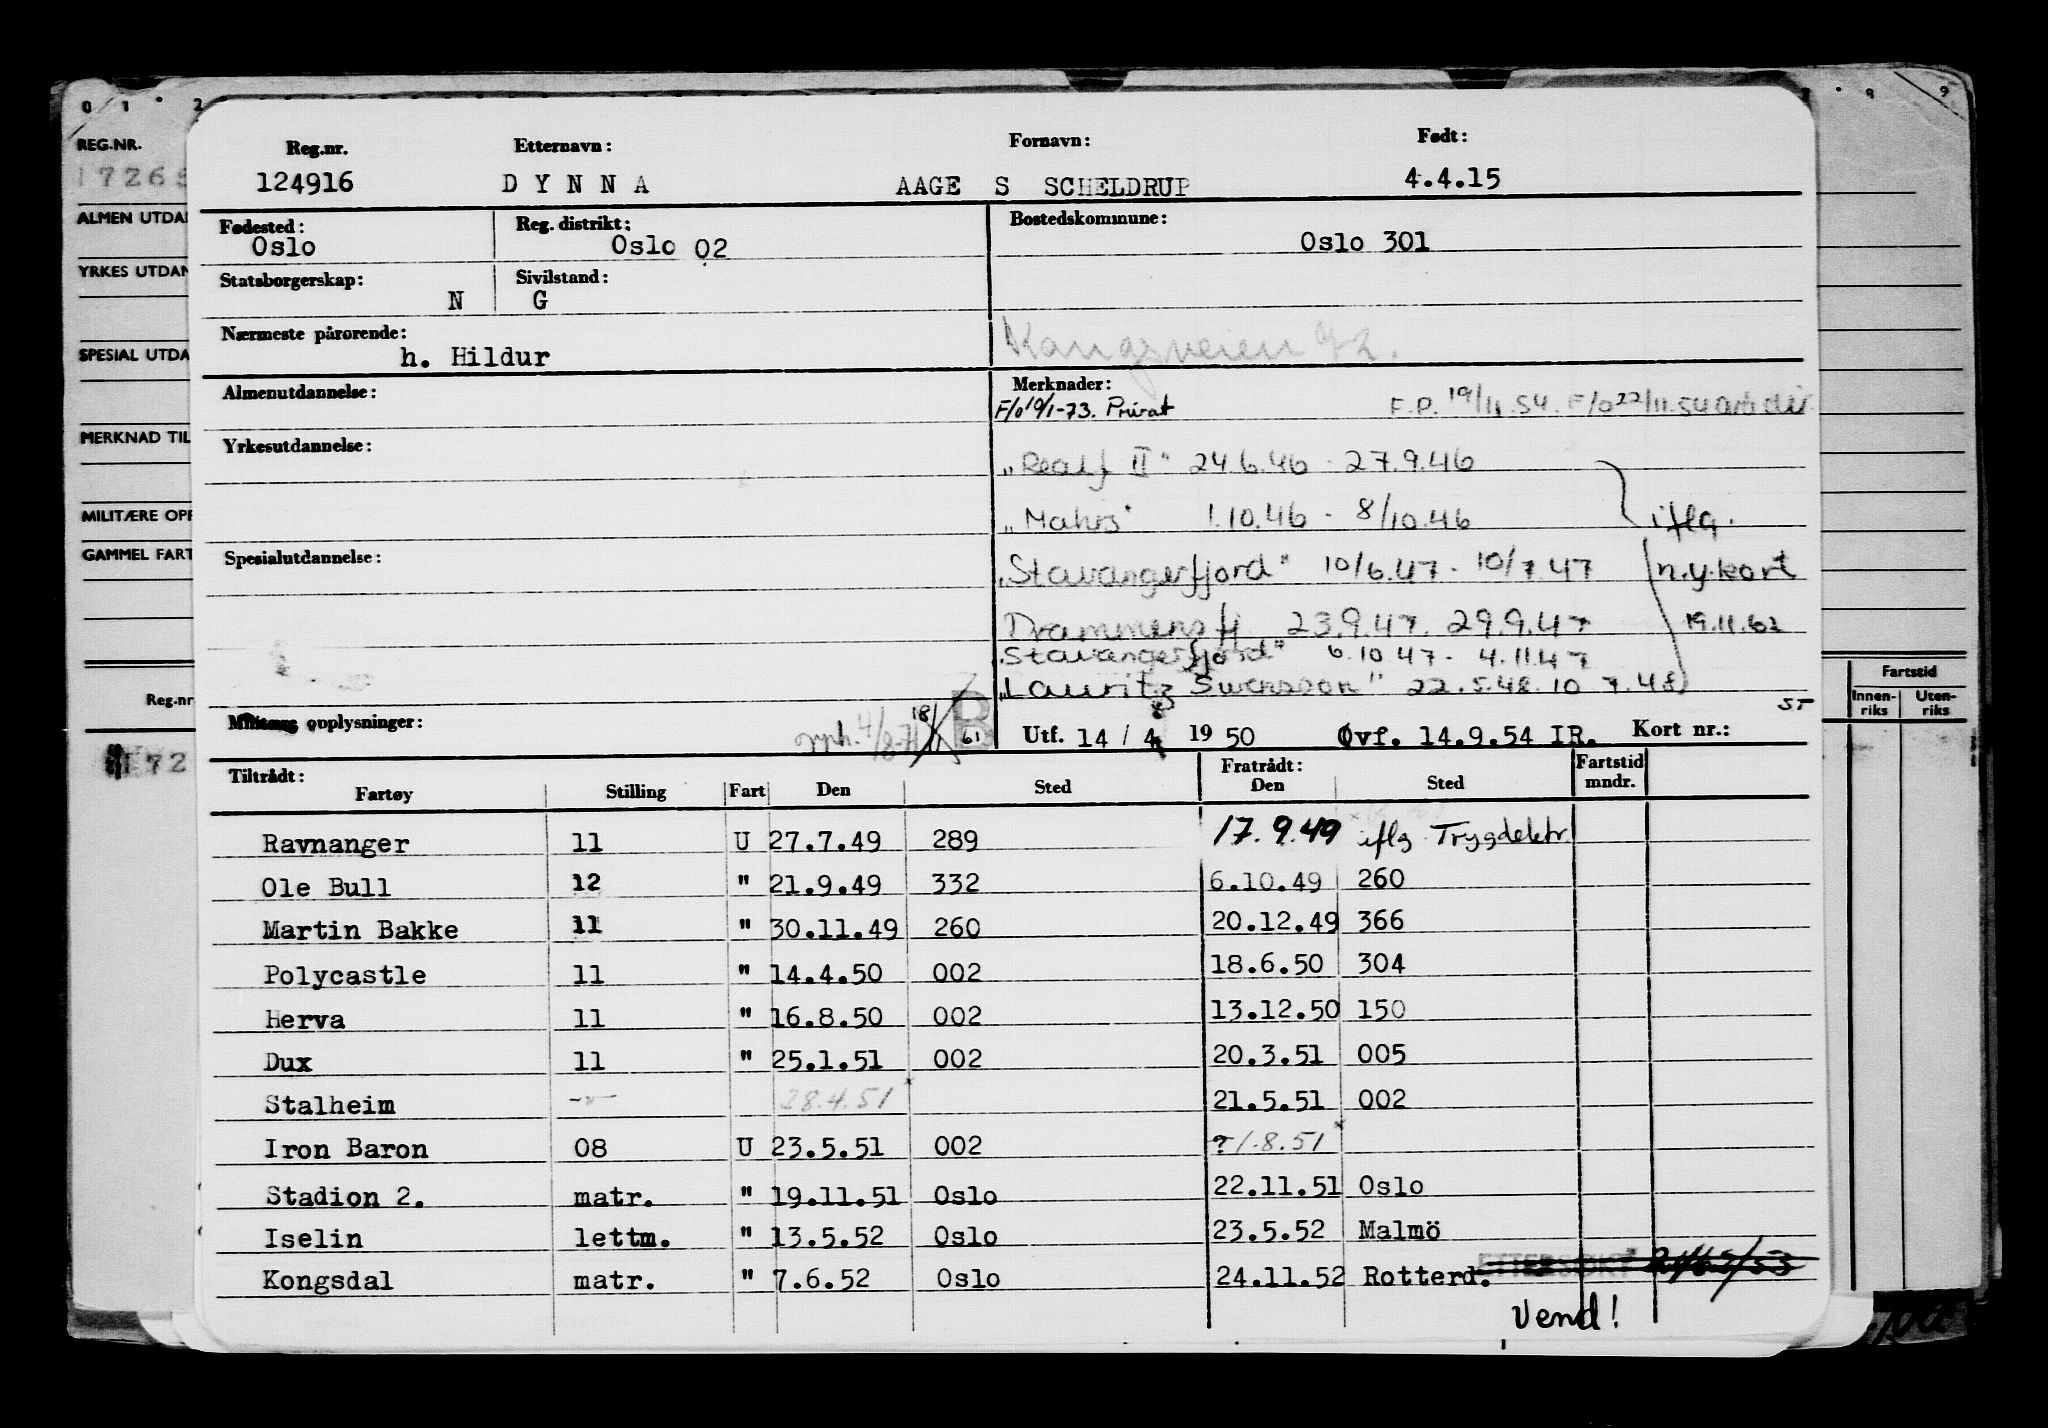 0 1 2 8 9
REG.NR.
17265
ALMEN UTDA
YRKES UTDAN
SPESIAL UTDA
MERKNAD TIL
MILITÆRE OPP
GAMMEL FART
Reg.nr
72
Fartstid
Innen-riks Uten-riks
Reg.nr. Etternavn: Fornavn: Født:
124916 DYNNA AAGE S SCHELDRUP 4.4.15
Fødested: Reg. distrikt: Bostedskommune:
Oslo Oslo 02 Oslo 301
Statsborgerskap: Sivilstand:
N G
Nærmeste pårørende:
h. Hildur
Almenutdannelse: Merknader:
F/o 19/1-73. Privat F.P. 19/11.54. F/o 22/11.54
Yrkesutdannelse:
"Realf II" 24.6.46 - 27.9.46
"Mahrs" 1.10.46 - 8/10.46 iflg.
Spesialutdannelse:
"Stavangerfjord" 10/6.47 - 10/7.47 n.y.kort
Drammensfj. 23.9.47. 29.9.47 19.11.62
"Stavangerfjord" 6.10.47 - 4.11.47
"Lauritz Swensson" 22.5.48. 10 7.48
Militære opplysninger: B 61
Utf. 14 / 4 1950 Øvf. 14.9.54 IR. Kort nr.: ST
Tiltrådt: Fratrådt: Fartstid mndr.
Fartøy Stilling Fart Den Sted Den Sted
Ravnanger 11 U 27.7.49 289 17.9.49 iflg Trygdektr.
Ole Bull 12 " 21.9.49 332 6.10.49 260
Martin Bakke 11 " 30.11.49 260 20.12.49 366
Polycastle 11 " 14.4.50 002 18.6.50 304
Herva 11 " 16.8.50 002 13.12.50 150
Dux 11 " 25.1.51 002 20.3.51 005
Stalheim -"- 28.4.51 * 21.5.51 002
Iron Baron 08 U 23.5.51 002 ? 1.8.51 *
Stadion 2. matr. " 19.11.51 Oslo 22.11.51 Oslo
Iselin lettm. " 13.5.52 Oslo 23.5.52 Malmö
Kongsdal matr. " 7.6.52 Oslo 24.11.52 Rotterd. ETTERSØKT
Vend!